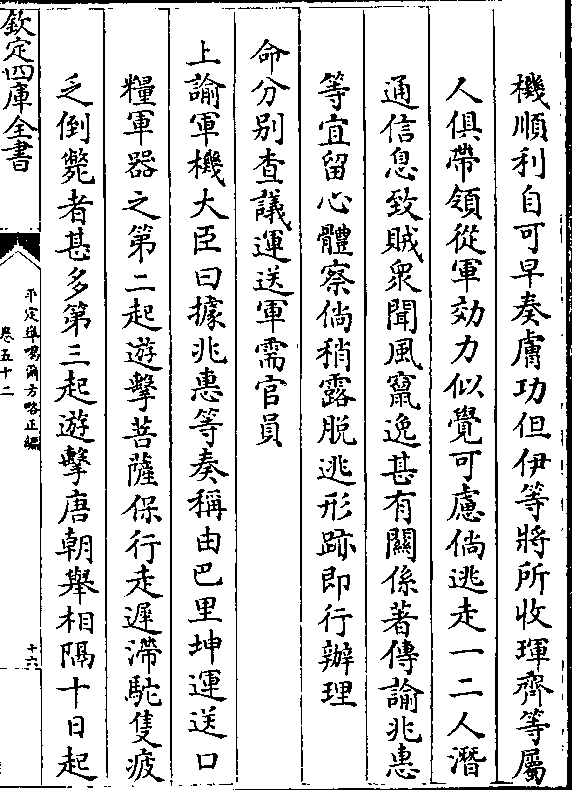 機順利自可早奏膚功但伊等將所收琿齊等屬
人俱帶領從軍効力似覺可慮倘逃走一二人潛
通信息致賊衆聞風竄逸甚有關係著傳諭兆惠
等宜留心體察倘稍露脱逃形跡即行辦理
命分别查議運送軍需官員
上諭軍機大臣曰據兆惠等奏稱由巴里坤運送口
糧軍器之第二起遊擊菩薩保行走遲滯駝隻疲
乏倒斃者甚多第三起遊擊唐朝舉相隔十日起
欽定四庫全書
平定準噶爾方略正編
卷五十二
十六